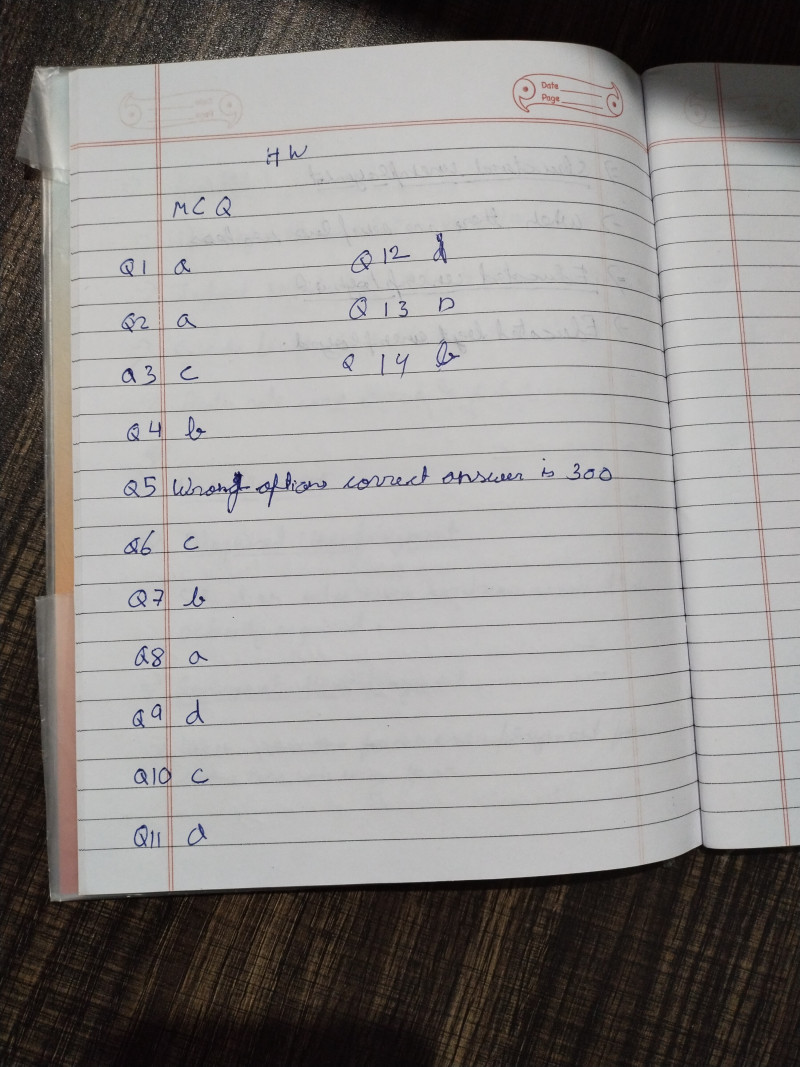 Date
Page
HW
MCQ
Q1 a
Q2 a
Q3 c
Q4 b
Q5 Wrong options correct answer is 300
Q6 c
Q7 b
Q8 a
Q9 d
Q10 c
Q11 d
Q12 d
Q13 D
Q 14 b